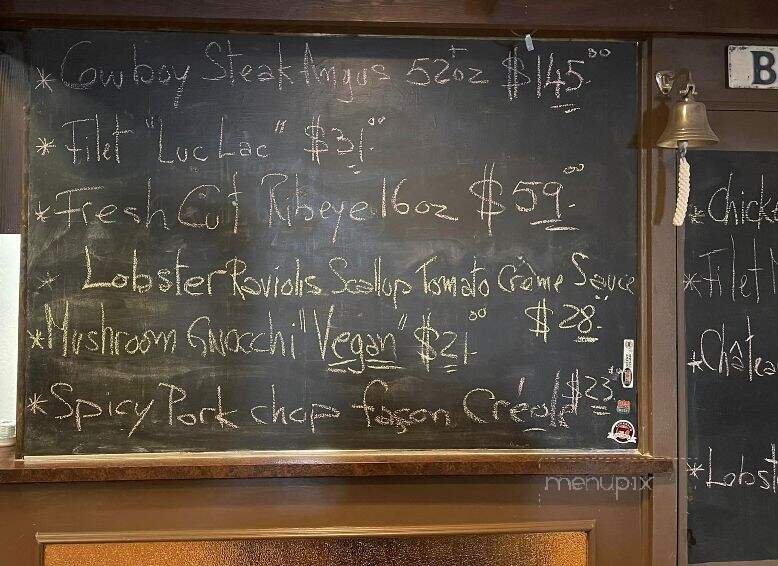 * Cowboy Steak Angus 52oz $145.00
* Filet "Luc Lac" $31.00
* Fresh Cut Ribeye 16oz $59.00
* Lobster Raviolis Scallop Tomato Crème Sauce
$28.
* Mushroom Gnocchi "Vegan" $21.00
* Spicy Pork chop façon Créole $23.
B
* Chick
* Filet
* Châtea
* Lobst
menupix